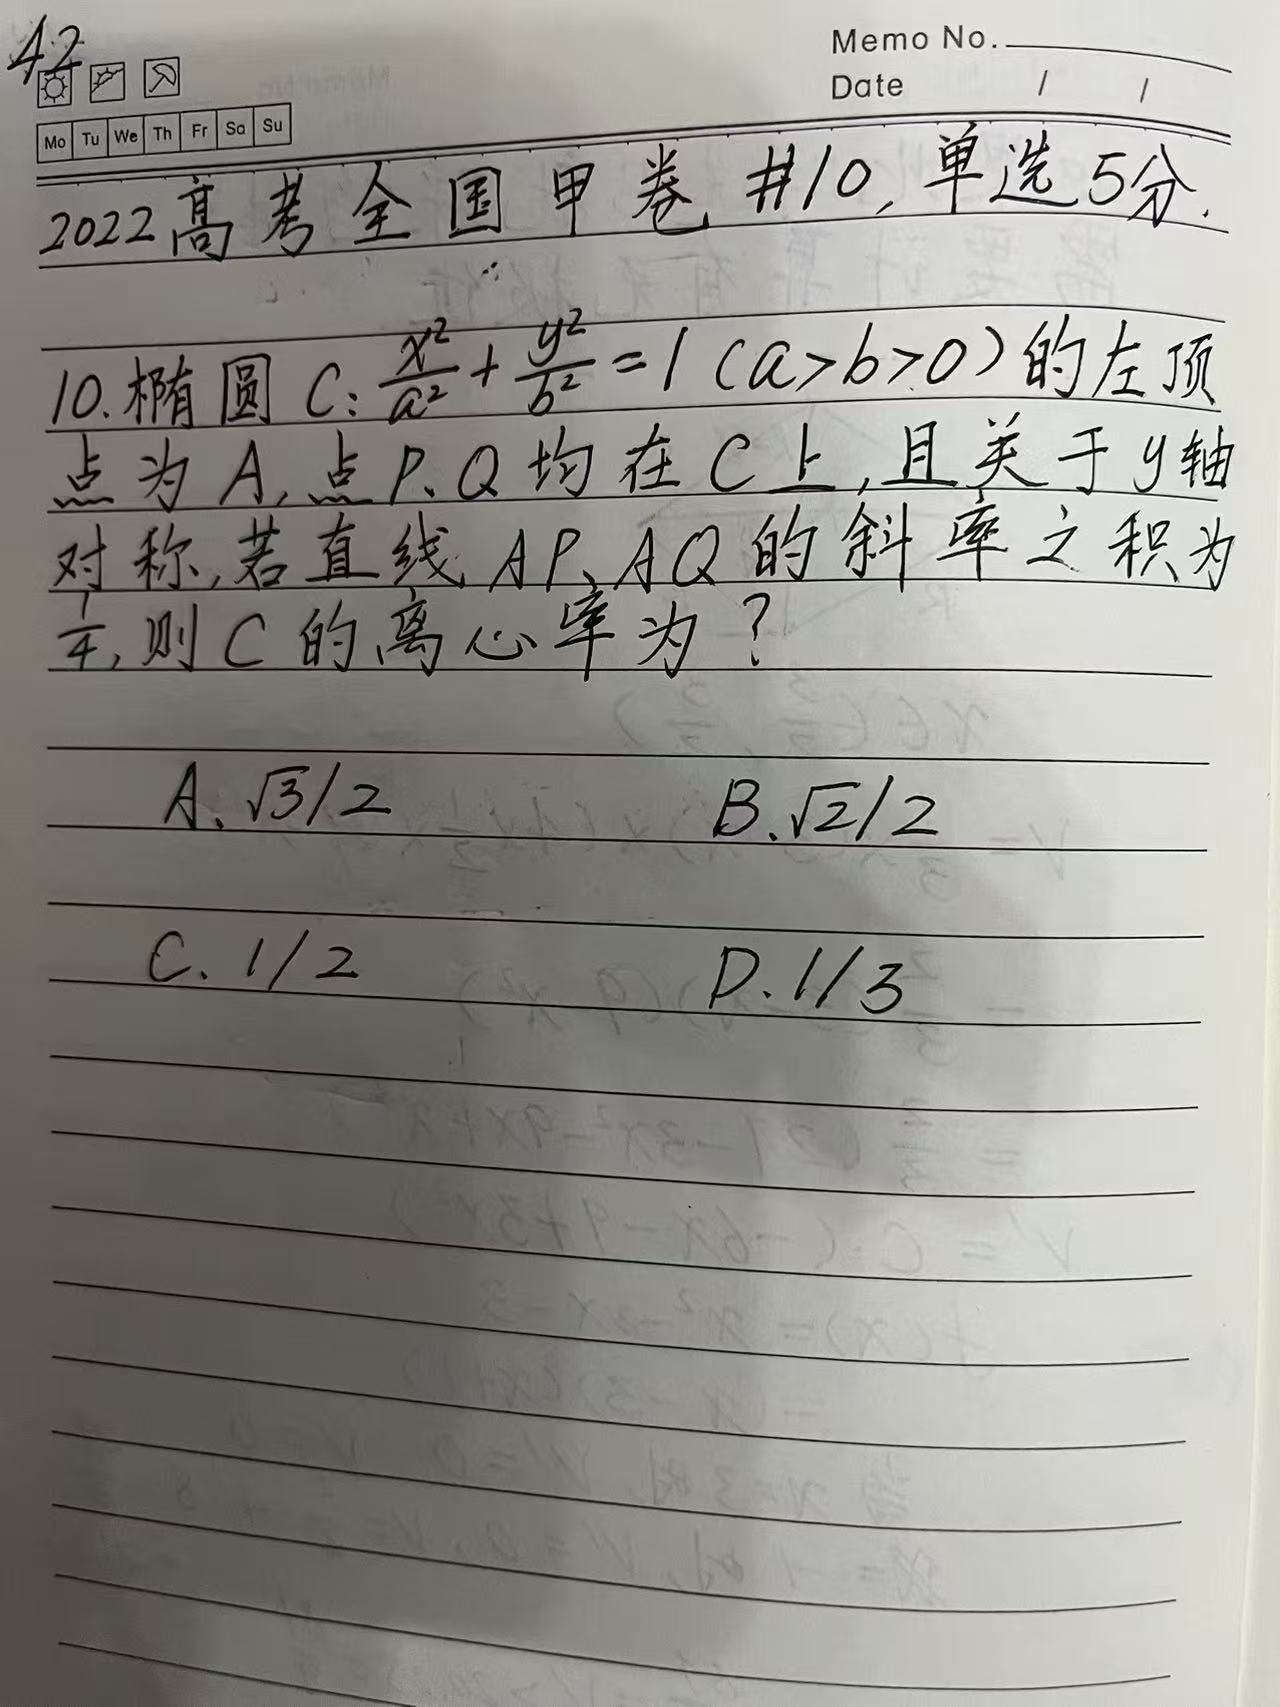 42
Memo No.
Date / /
Mo Tu We Th Fr Sa Su
2022高考全国甲卷 #10,单选5分.
10.椭圆 C: x²/a² + y²/b² = 1 (a>b>0)的左顶
点为A,点P、Q均在C上,且关于y轴
对称,若直线AP、AQ的斜率之积为
1/4,则C的离心率为?
A.√3/2 B.√2/2
C.1/2 D.1/3